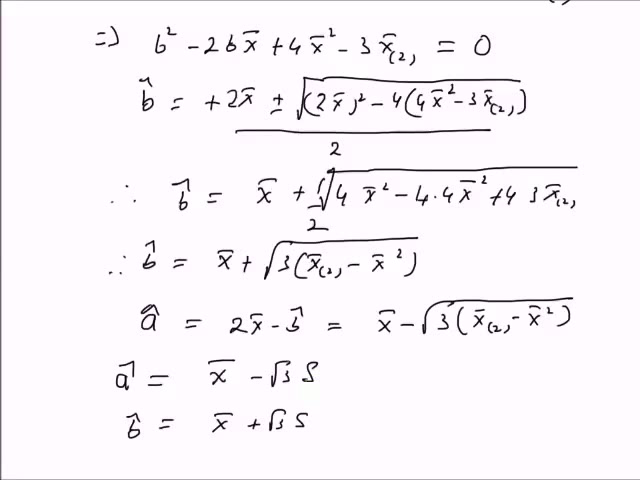 ⇒ b² - 2bx̄ + 4x̄² - 3x̄₍₂₎ = 0
b̂ = +2x̄ ± √((2x̄)² - 4(4x̄² - 3x̄₍₂₎)) / 2
∴ b̂ = x̄ + 1/2 √(4x̄² - 4·4x̄² + 4 3x̄₍₂₎)
∴ b̂ = x̄ + √(3(x̄₍₂₎ - x̄²))
â = 2x̄ - b̂ = x̄ - √(3(x̄₍₂₎ - x̄²))
â = x̄ - √3 S
b̂ = x̄ + √3 S